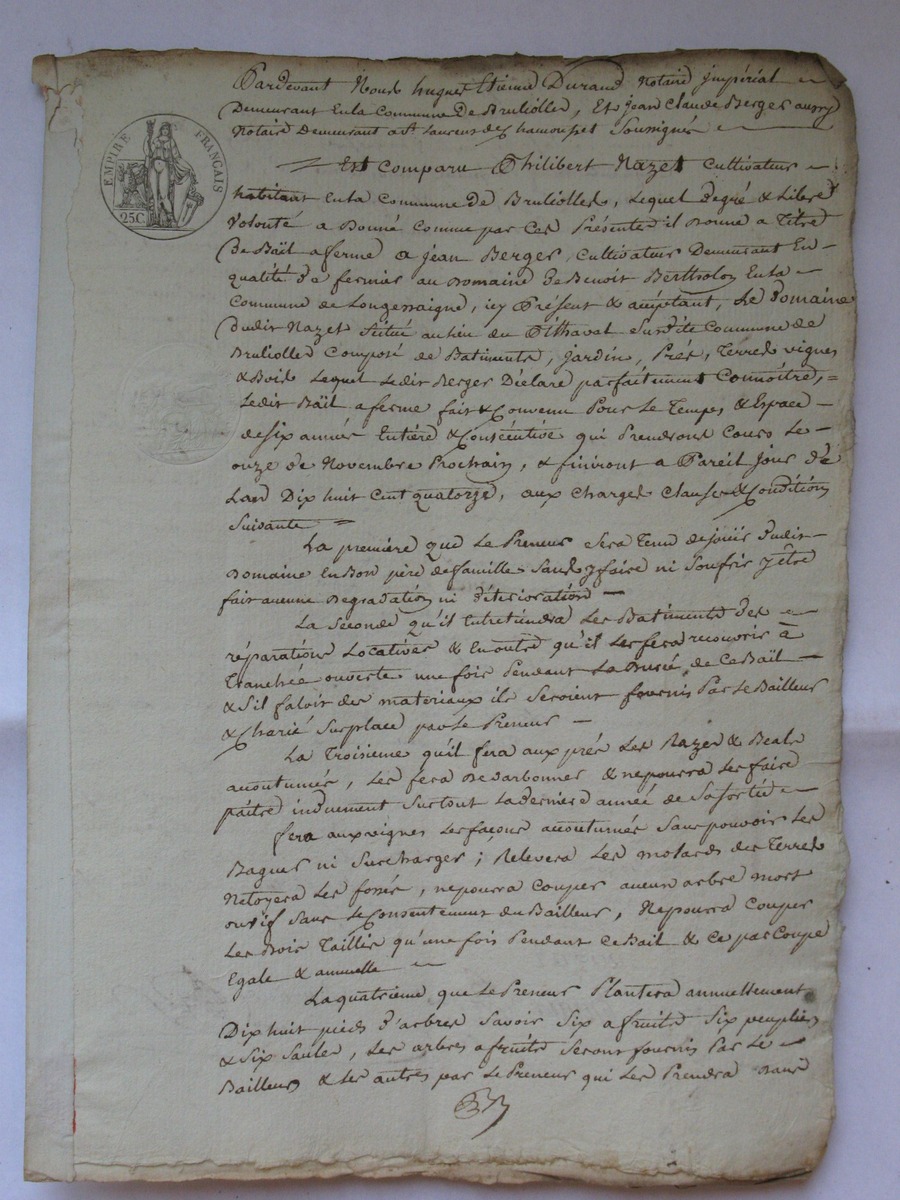 EMPIRE FRANÇAIS
25C.
Pardevant Nous hugues Etienne Durand Notaire jmpérial
Demeurant Enla Commune De Brullioles, Et jean Claude Berger aussy
Notaire Demeurant a St Laurens de Chamousset Soussignés
Est Comparu Philibert Nazet Cultivateur
habitant Enla Commune De Brullioles, Lequel degré & Libre
Volonté a Donné Comme par Ces Présentes il Donne a Titre
De Bail aferme a jean Berger, Cultivateur Demeurant En
qualité de fermier au Domaine De Benoit Bertholon Enla
Commune de Longessaigne, icy Présent & acceptant, Le Domaine
dudit Nazet Situé au lieu du Pithaval Surdite Commune de
Brullioles Composé de Batiments, Jardin, Prés, Terres vignes
& Bois Lequel Ledit Berger Déclare parfaitement Connoitre,
Ledit Bail aferme fait & Convenu Pour Le Temps & Espace
de six années Entiere & Consécutive qui Prendront Cours Le
onze de Novembre Prochain, & finiront a Pareil Jour de
Lan Dix huit Cent quatorze, aux Charges Clauses & Conditions
Suivante
La première que Le Preneur Sera Tenu de jouir dudit
Domaine En Bon père de famille Sans y faire ni Soufrir y être
fait aucune Dégradation ni déterioration
La Seconde qu'il Entretiendra Les Batiments des
réparations Locatives & En outre qu'il Les fera recouvrir à
Tranchée ouverte une fois Pendant La Durée de Ce Bail
& Sil faloit des materiaux ils Seroient fournis Par Le Bailleur
& Charié Surplace par Le Preneur
La Troisieme qu'il fera aux prés Les Razes & Beals
acoutumés, Les fera Desarbonner & ne pourra Les faire
paitre induement Surtout La derniere année de Sa Sortie
fera aux vignes Les façons acoutumés Sans pouvoir Les
Baguer ni Surcharger; Relevera Les molards des Terres
Netoyera Les fossés, ne pourra Couper aucun arbre mort
ou vif Sans Le Consentement du Bailleur, Ne pourra Couper
Les Bois Taillis qu'une fois Pendant Ce Bail & Ce par Coupe
Egale & annuelle
La quatrieme que Le Preneur Plantera annuellement
Dix huit pieds d'arbres Savoir Six a fruits Six peupliers
& Six Saules, Les arbres a fruits Seront fournis Par Le
Bailleur & Les autres par Le Preneur qui Les Prendra Dans